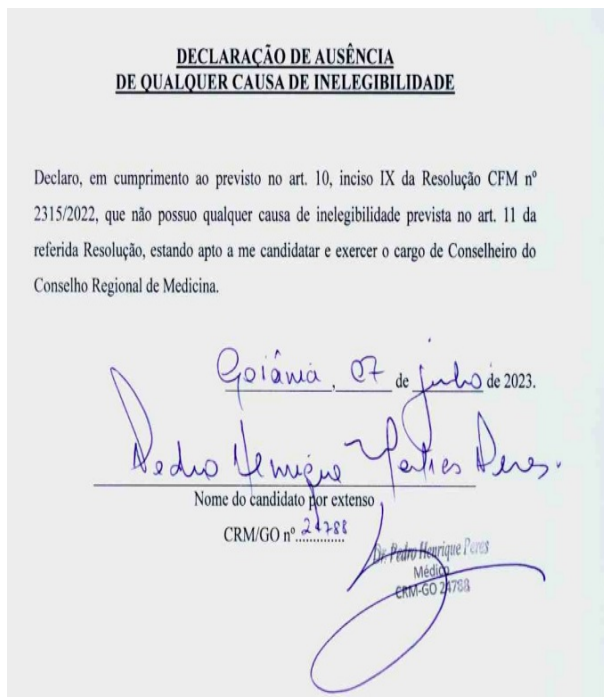 DECLARAÇÃO DE AUSÊNCIA
DE QUALQUER CAUSA DE INELEGIBILIDADE
Declaro, em cumprimento ao previsto no art. 10, inciso IX da Resolução CFM nº
2315/2022, que não possuo qualquer causa de inelegibilidade prevista no art. 11 da
referida Resolução, estando apto a me candidatar e exercer o cargo de Conselheiro do
Conselho Regional de Medicina.
Goiânia, 07 de junho de 2023.
Pedro Henrique Peres.
Nome do candidato por extenso
CRM/GO nº 24788
Dr. Pedro Henrique Peres
Médico
CRM-GO 24788